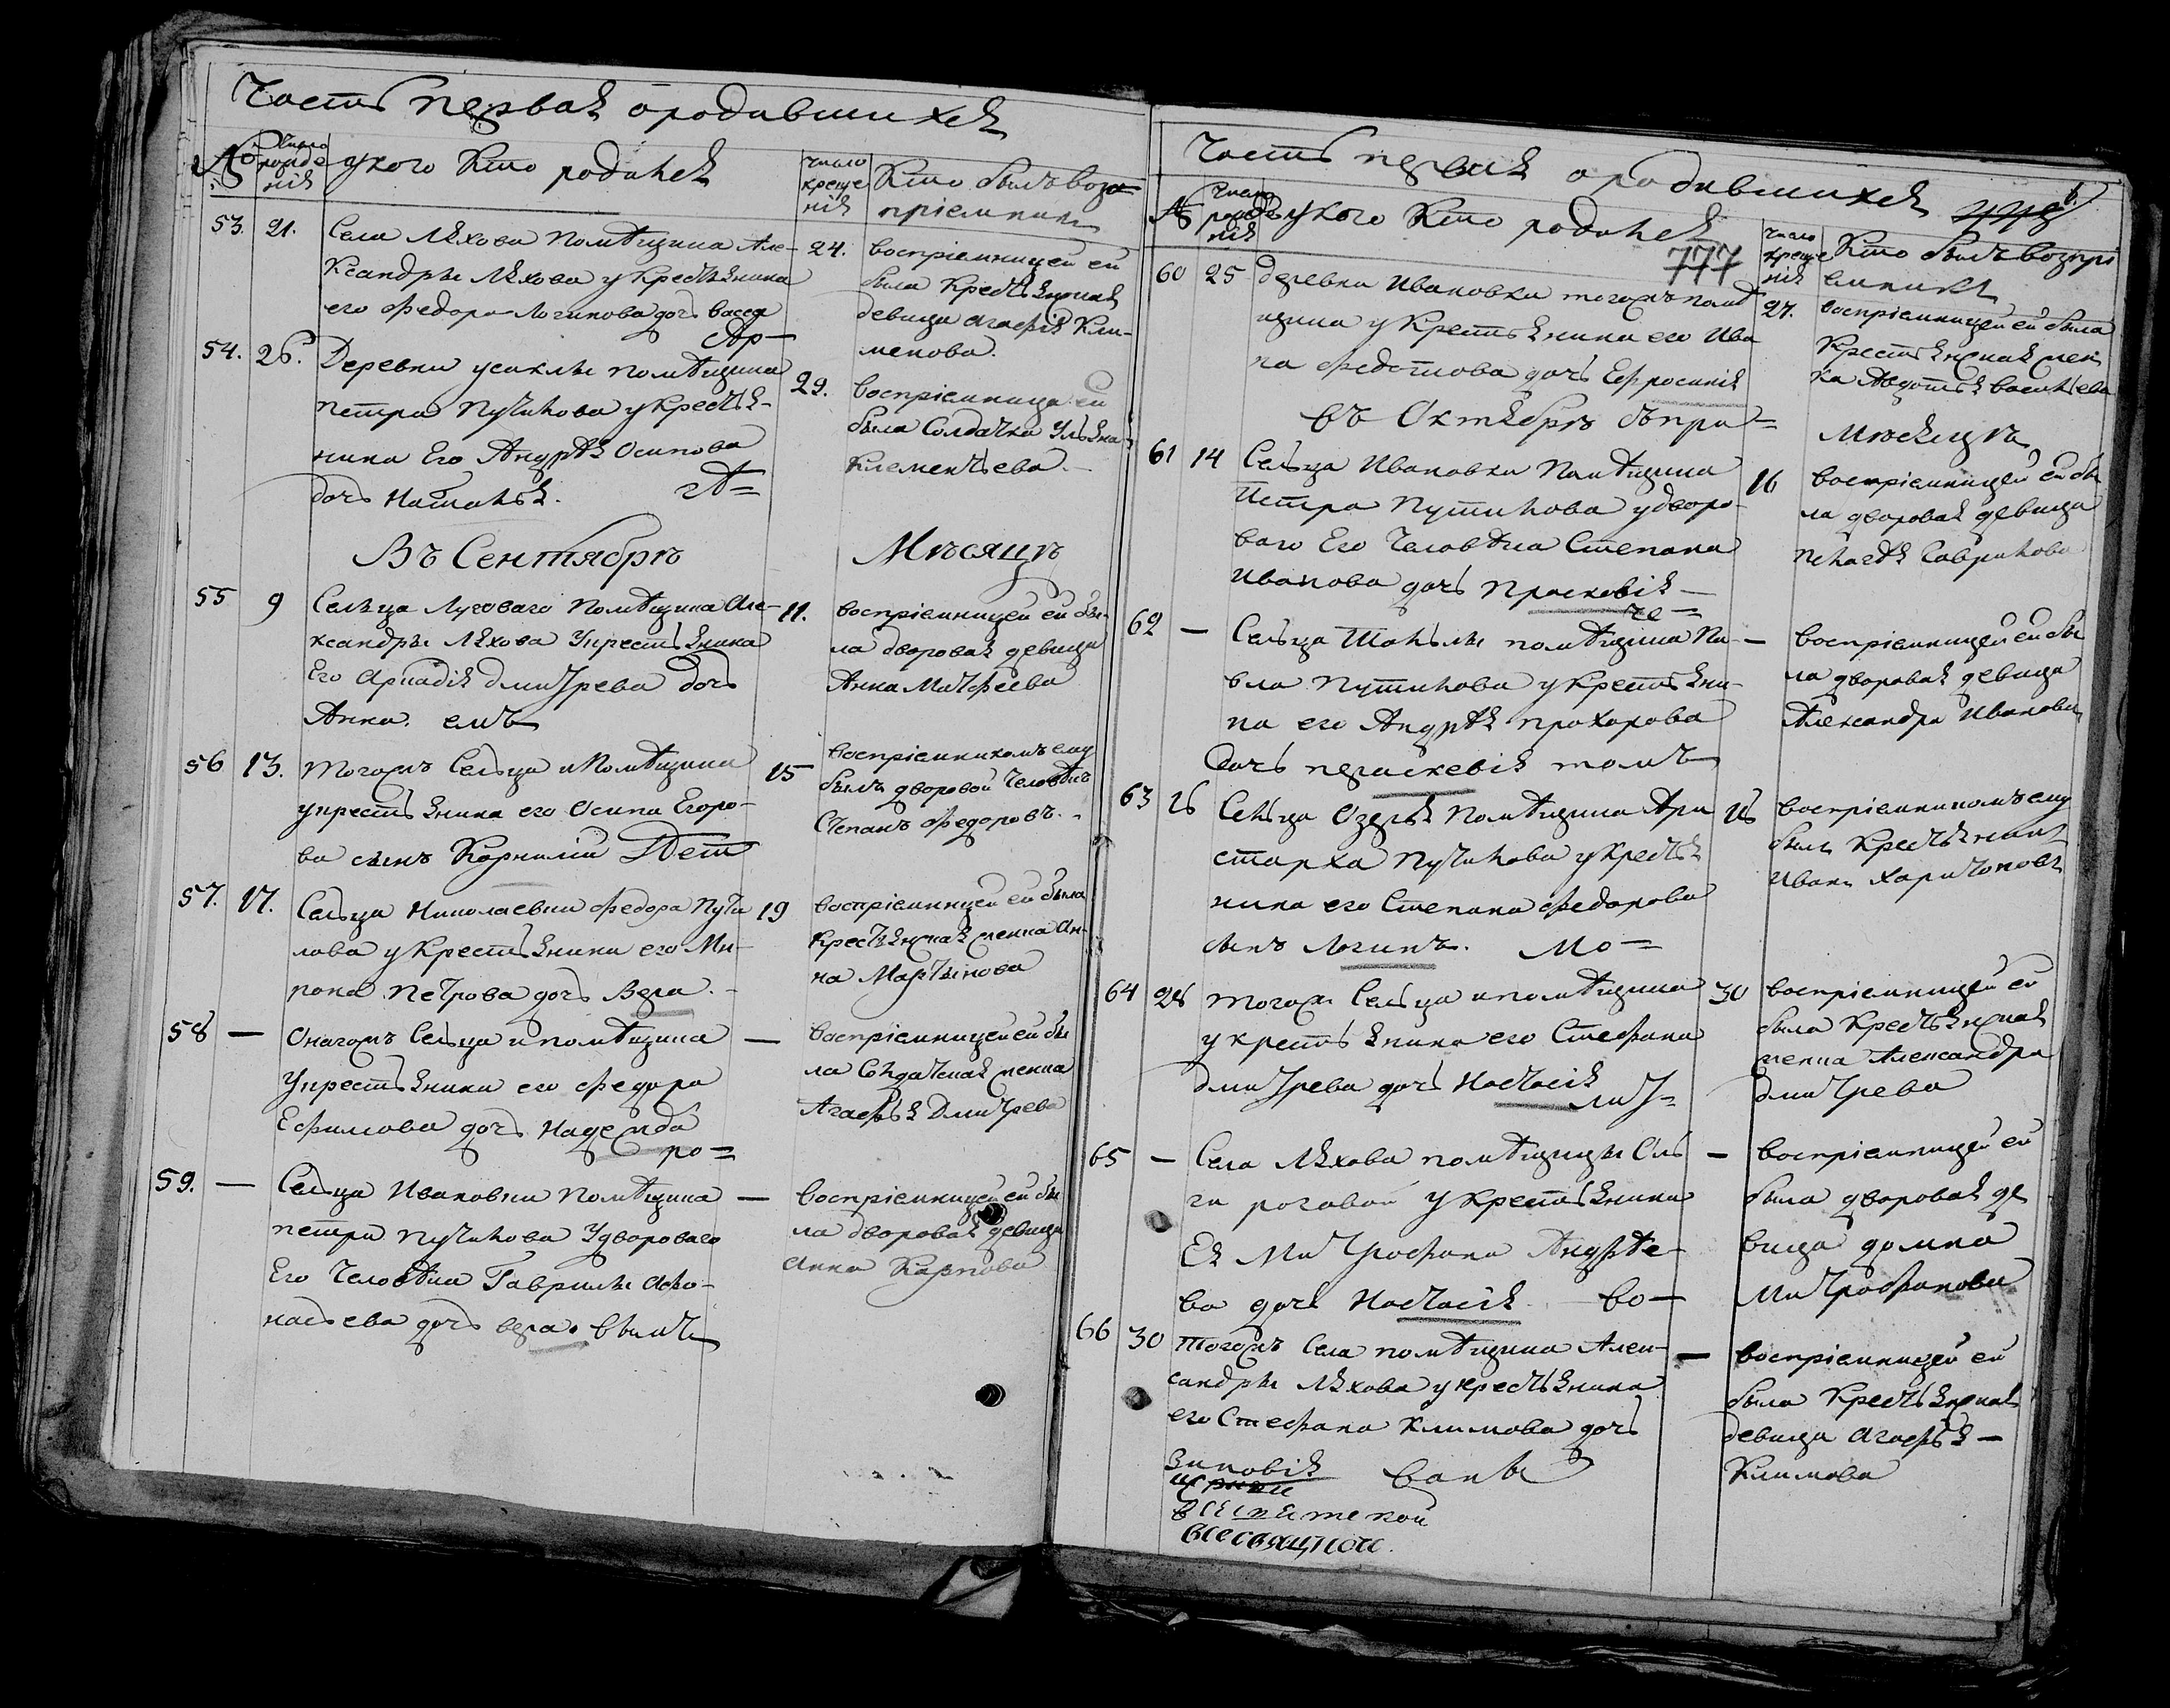 Часть первая о родившихся
№ Число рожде нія у кого кто родился число креще нія Кто былъ воз
пріемники
53. 21. Села Ляхова Помѣщика Але-
ксандры Ляхова у крестьянина
его Федора Логинова дочь Васса
24. воспріемницей ей
была Крестьянская
девица Агафія Кли-
менова.
54. 26. Деревни усаклы помѣщика
петра Путилова у крестья-
нина Его Андрѣя Осипова
дочь Наталья.
29. воспріемница ей
была Солдатка Ульяна
Клементьева.
Въ Сентябрѣ Мѣсяцѣ
55 9 Сельца Луговаго Помѣщика Але-
ксандры Ляхова У крестьянина
Его Аркадія дмитрева дочь
Анна.
11. воспріемницей ей бы-
ла дворовая девица
Анна Матфеева
56 13. Тогожъ Сельца и Помѣщика
у крестьянина его Осипа Егоро-
ва сынъ Корнилій
15 воспріемникомъ ему
былъ дворовой Человѣкъ
Степанъ Федоровъ.
57. 17. Сельца Николаевки Федора Пути
лова у крестьянина его Ми-
рона Петрова дочь Вера.
19 воспріемницей ей была
крестьянская женка Ан-
на Мартынова
58 — Онагожъ Сельца и помѣщика
У крестьянина его Федора
Ефимова дочь Надежда
ро=
— воспріемницей ей бы
ла Солдатская женка
Агафья Дмитрева
59. — Сельца Ивановки Помѣщика
петра Путилова У двороваго
Его Человѣка Гаврилы Афо-
насьева дочь вера.
— воспріемницей ей бы
ла дворовая девица
Анна Карпова
Часть первая о родившихся
777
№ Число рожде нія у кого кто родился число креще нія Кто былъ возпрі
емники
60 25 деревни Ивановки тогожъ помѣ
щика у Крестьянина его Ива
на Федотова дочь Ефросинія
27. воспріемницей ей была
Крестьянская жен
ка Авдотья Васильева
въ Октябрѣ Мѣсяцѣ
61 14 Сельца Ивановки Помѣщика
Петра Путилова у дворо-
ваго Его Человѣка Степана
Иванова дочь Прасковія —
16 воспріемницей ей бы
ла дворовая девица
Пелагѣя Гаврилова
62 — Сельца Шаклы помѣщика Па-
вла Путилова у крестьяни-
на его Андрѣя прохорова
дочь параскевія
— воспріемницей ей бы
ла дворовая девица
Александра Иванова
63 16 Сельца Озерья Помѣщика Ари
старха Путилова у крестья
нина его Степана Федорова
сынъ Логинъ. Мо=
18 воспріемникомъ ему
былъ Крестьянинъ
Иванъ Харитоновъ
64 28 тогожъ Сельца и помѣщика
у крестьянина его Стефана
дмитрева дочь Настасія
30 воспріемницей ей
была Крестьянская
женка Александра
дмитрева
65 — Села Ляхова помѣщицы Оль
ги роговой у крестьянина
Ея Митрофана Андрѣе-
ва дочь Настасія во—
— воспріемницей ей
была дворовая де
вица домна
Митрофанова
66 30 тогожъ Села помѣщика Алек-
сандры Ляхова у крестьянина
его Стефана Климова дочь
Зиновія
— воспріемницей ей
была Крестьянская
девица Агафья —
Климова